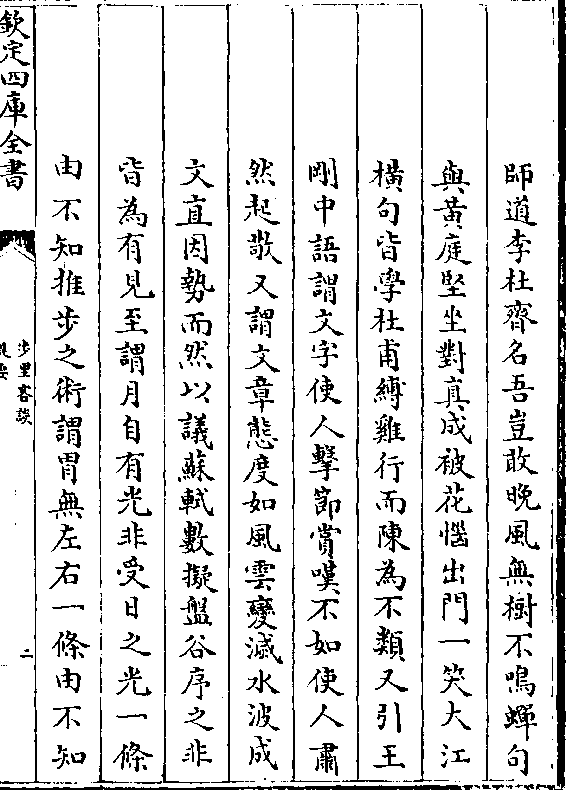 師道李杜齊名吾豈敢晚風無樹不鳴蟬句
與黃庭堅坐對真成被花惱出門一笑大江
橫句皆學杜甫縛雞行而陳為不類又引王
剛中語謂文字使人擊節賞嘆不如使人肅
然起敬又謂文章態度如風雲變滅水波成
文直因勢而然以議蘇軾數擬盤谷序之非
皆為有見至謂月自有光非受日之光一條
由不知推步之術謂胃無左右一條由不知
欽定四庫全書
步里客談
提要
二